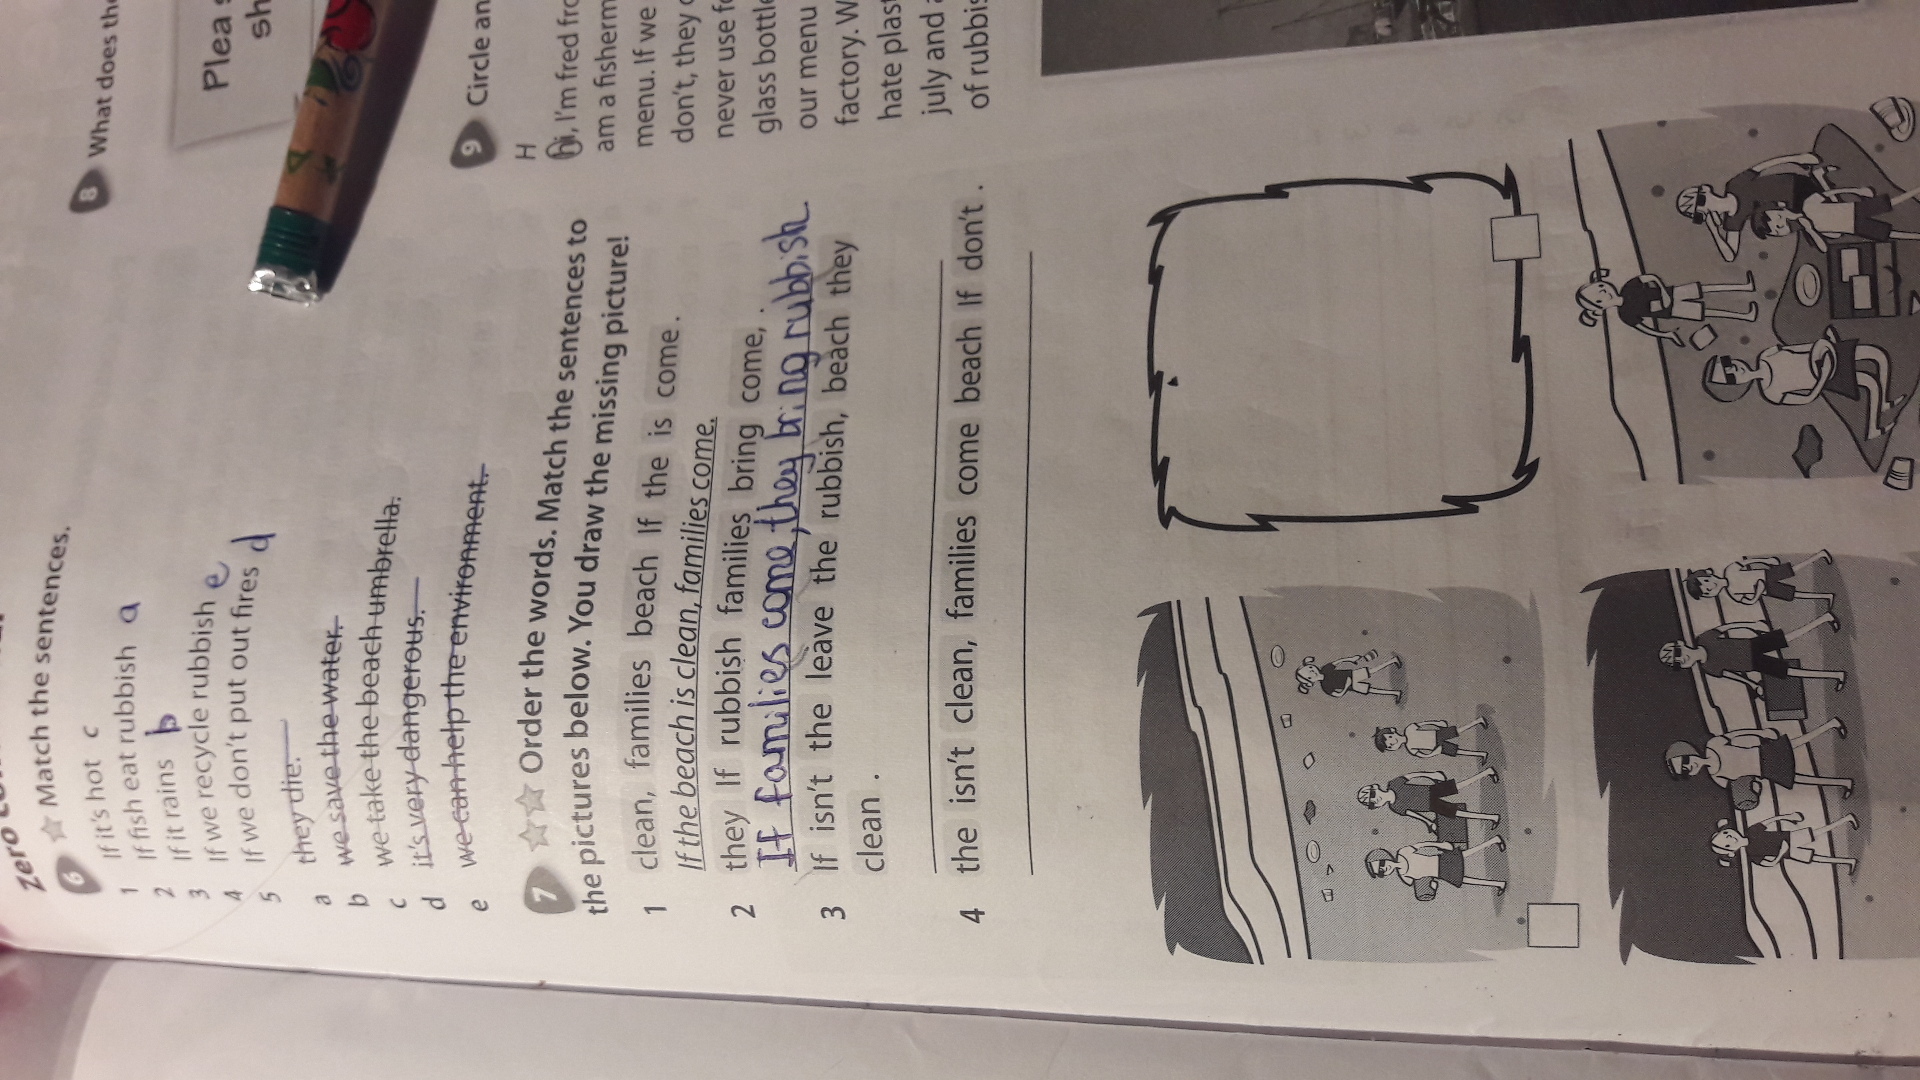 Zero
6 Match the sentences.
1 If it's hot c
2 If fish eat rubbish a
3 If it rains b
4 If we recycle rubbish e
5 If we don't put out fires d
a they die.
b we save the water.
c we take the beach umbrella.
d it's very dangerous.
e we can help the environment.
7 Order the words. Match the sentences to
the pictures below. You draw the missing picture!
1 clean, families beach If the is come .
If the beach is clean, families come.
2 they If rubbish families bring come, .
If families come, they bring rubbish.
3 If isn't the leave the rubbish, beach they
clean .
4 the isn't clean, families come beach If don't .
8 What does the
Plea
sh
9 Circle an
H
hi, I'm fred fro
am a fisherm
menu. If we
don't, they
never use f
glass bottle
our menu
factory. W
hate plast
july and
of rubbis